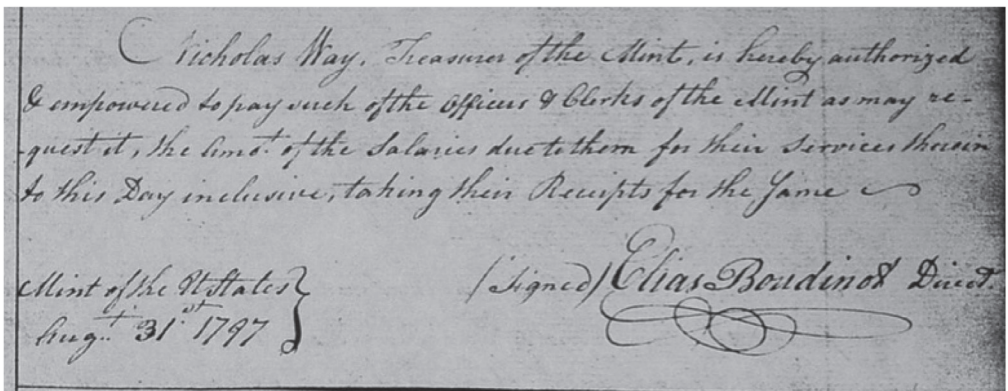 Nicholas Way, Treasurer of the Mint, is hereby authorized
& empowered to pay such of the Officers & Clerks of the Mint as may re-
-quest it, the Amot. of the Salaries due to them for their Services therein
to this Day inclusive, taking their Receipts for the Same
Mint of the U States
Augt. 31st 1797
(Signed) Elias Boudinot Direct.